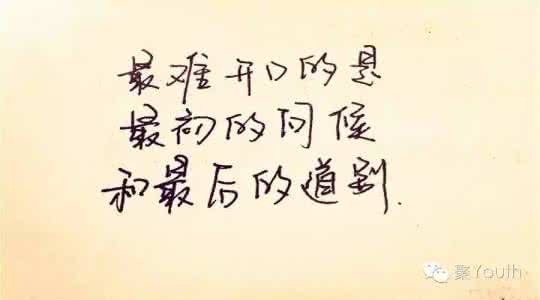 最难开口的是
最初的问候
和最后的道别.
聚Youth